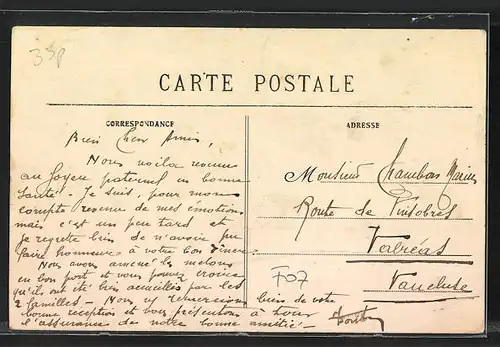 33p
CARTE POSTALE
CORRESPONDANCE
ADRESSE
Bien Cher Amis,
Nous voila revenu
au foyer paternel en bonne
santé. Je suis, pour mon
compte revenu de mes émotions
mais c'est un peu tard et
je regrette bien de n'avoir pu
faire honneur à votre bon dîner
Nous avons amené les melons
en bon port et vous pouvez croire
qu'ils ont été bien accueillis par les
2 familles - Nous vs remercions bien de votre
bonne reception et vous présentons à tous
l'assurance de notre bonne amitié -
Monsieur Chambon Marius
Route de Vinsobres
Valréas
Vaucluse
F07